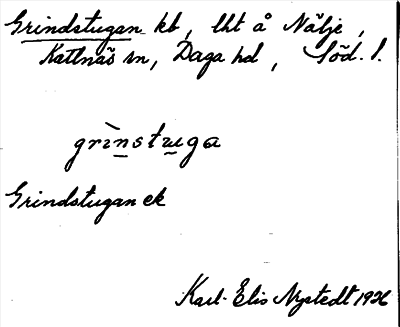 Grindstugan kb, lht å Nälje,
Kattnäs sn, Daga hd, Söd. l.
grìnstuga
Grindstugan ek
Karl-Elis Nystedt 1936